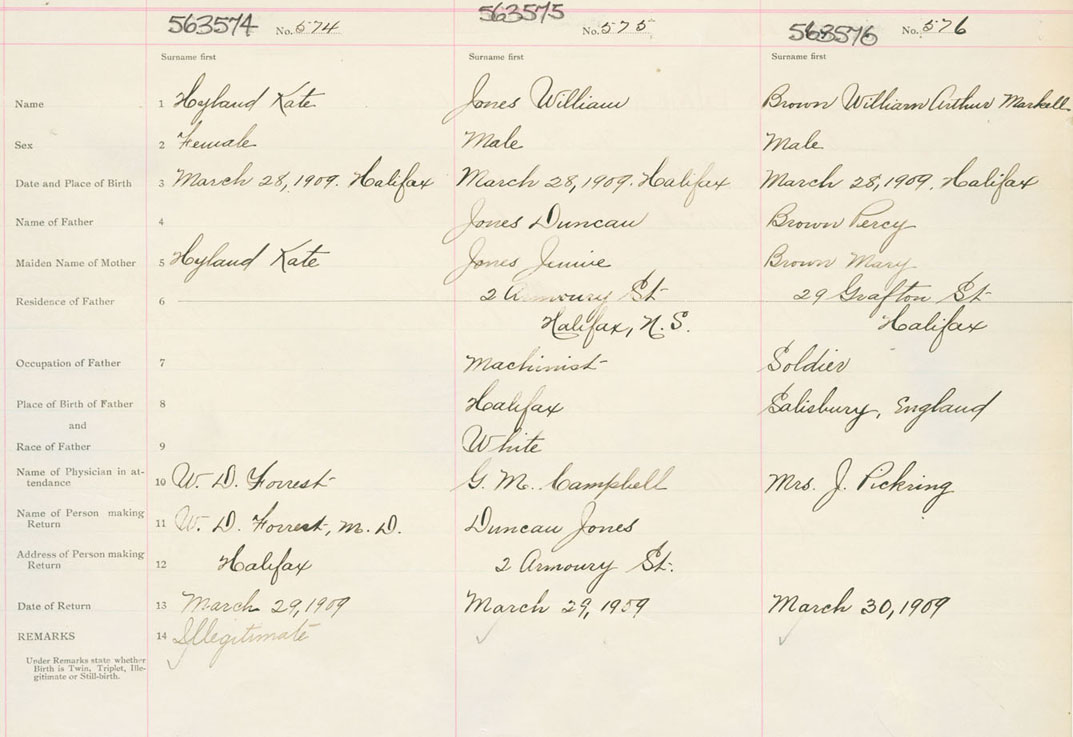 563574 No. 574 563575 No. 575 563576 No. 576
Surname first Surname first Surname first
Name 1 Hyland Kate Jones William Brown William Arthur Markell
Sex 2 Female Male Male
Date and Place of Birth 3 March 28, 1909. Halifax March 28, 1909. Halifax March 28, 1909. Halifax
Name of Father 4 Jones Duncan Brown Percy
Maiden Name of Mother 5 Hyland Kate Jones Brown Mary
Residence of Father 6 2 Armoury St 29 Grafton St
Halifax, N.S. Halifax
Occupation of Father 7 Machinist Soldier
Place of Birth of Father 8 Halifax Salisbury, England
and
Race of Father 9 White
Name of Physician in at-
tendance 10 W. D. Forrest G. M. Campbell Mrs. J. Pickring
Name of Person making
Return 11 W. D. Forrest, M. D. Duncan Jones
Address of Person making
Return 12 Halifax 2 Armoury St.
Date of Return 13 March 29, 1909 March 29, 1909 March 30, 1909
REMARKS 14 Illegitimate
Under Remarks state whether
Birth is Twin, Triplet, Ille-
gitimate or Still-birth.